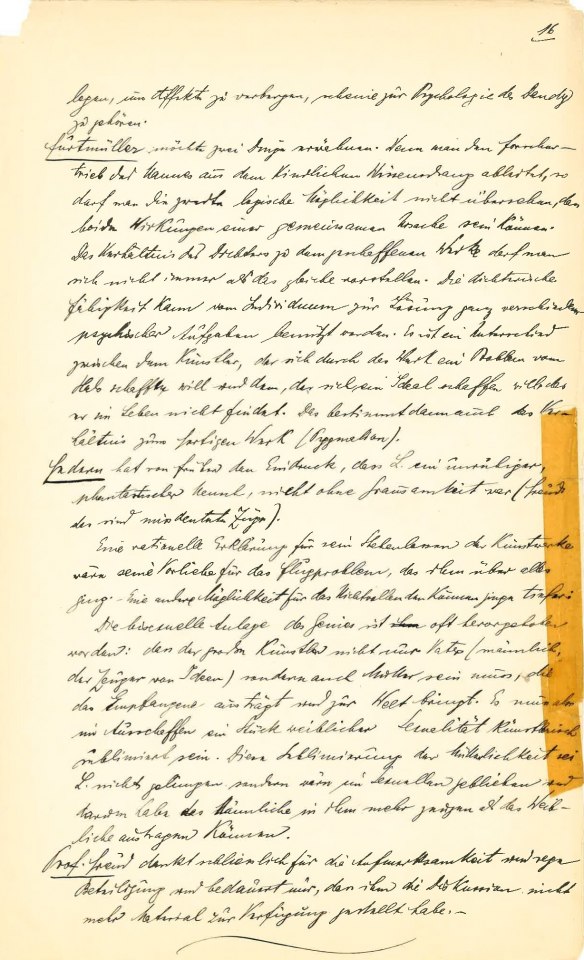 16
legen, um Affekte zu verbergen, scheine zur Psychologie des Dandy
zu gehören.
Furtmüller möchte zwei Dinge erwähnen. Wenn man den Forscher-
trieb des Mannes aus dem kindlichen Wissensdrang ableitet, so
darf man die zweite logische Möglichkeit nicht übersehen, dass
beide Wirkungen einer gemeinsamen Ursache sein können.
Das Verhältnis des Dichters zu dem geschaffenen Werke darf man
sich nicht immer als das gleiche vorstellen. Die dichterische
Fähigkeit kann vom Individuum zur Lösung ganz verschiedener
psychischer Aufgaben benützt werden. Es ist ein Unterschied
zwischen dem Künstler, der sich durch das Werk ein Problem vom
Hals schaffen will und dem, der sich ein Ideal schaffen will, das
er im Leben nicht findet. Das bestimmt dann auch das Ver-
hältnis zum fertigen Werk (Pygmalion).
Federn hat von früher den Eindruck, dass L. ein unruhiger,
phantastischer Mensch, nicht ohne Grausamkeit war (Freud:
das sind missdeutete Züge).
Eine rationelle Erklärung für sein Stehenlassen der Kunstwerke
wäre seine Vorliebe für das Flugproblem, das ihm über alles
ging. – Eine andere Möglichkeit für das Nichtvollenden können ginge tiefer:
Die bisexuelle Anlage des Genies ist oft hervorgehoben
worden: dass der große Künstler nicht nur Vater (männlich,
der Zeuger von Ideen) sondern auch Mutter sein muss, die
das Empfangene austrägt und zur Welt bringt. Es muss also
im Ausschaffen ein Stück weiblicher Sexualität künstlerisch
sublimiert sein. Diese Sublimierung der Mütterlichkeit sei
L. nicht gelungen sondern wäre im Sexuellen geblieben und
darum habe das Männliche in ihm mehr zeugen als das Weib-
liche austragen können.
Prof. Freud dankt schließlich für die Aufmerksamkeit und rege
Beteiligung und bedauert nur, dass ihm die Diskussion nicht
mehr Material zur Verfügung gestellt habe. –